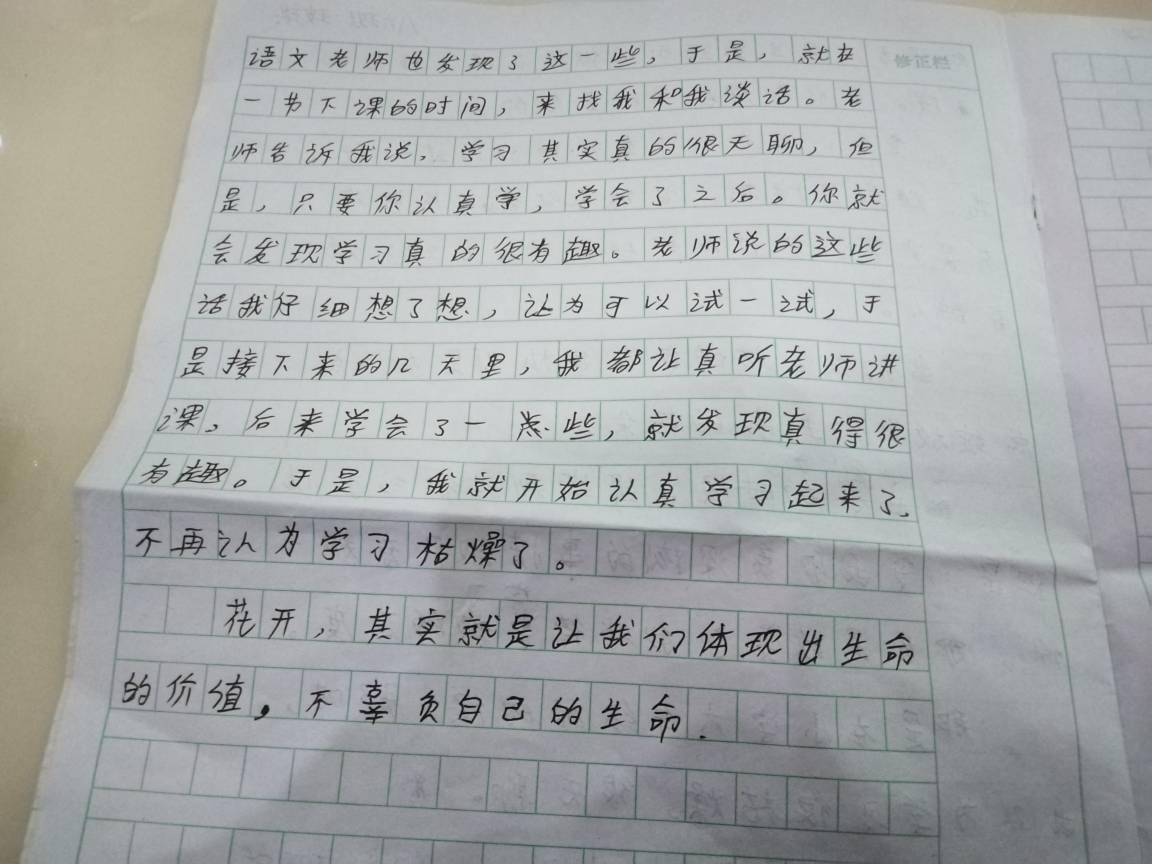 修正栏
语文老师也发现了这一些,于是,就在
一节下课的时间,来找我和我谈话。老
师告诉我说,学习其实真的很无聊,但
是,只要你认真学,学会了之后。你就
会发现学习真的很有趣。老师说的这些
话我仔细想了想,让为可以试一试,于
是接下来的几天里,我都让真听老师讲
课,后来学会了一点些,就发现真得很
有趣。于是,我就开始认真学习起来了,
不再认为学习枯燥了。
花开,其实就是让我们体现出生命
的价值,不辜负自己的生命.